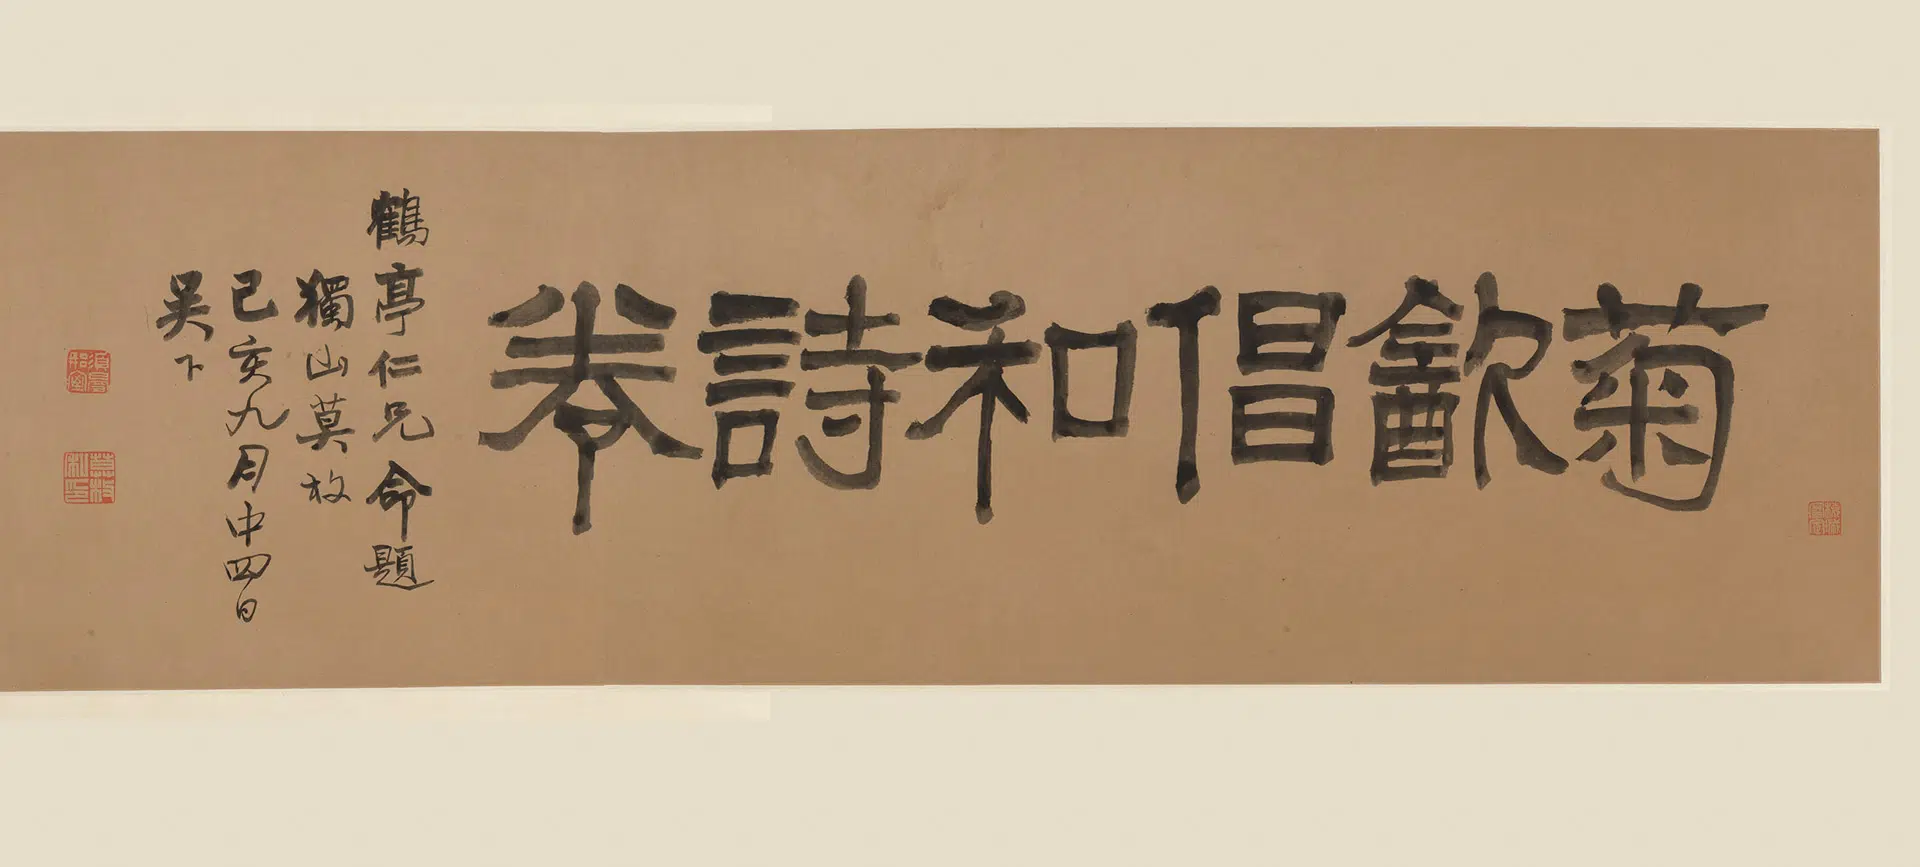 菊㱃倡和詩卷
鶴亭仁兄命題
獨山莫枚
己亥九月中四日
吴下